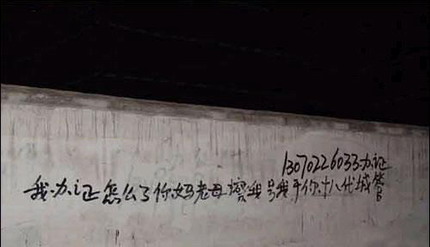 13070226033办证
我办证怎么了你妈老母擦我号我干你十八代城管